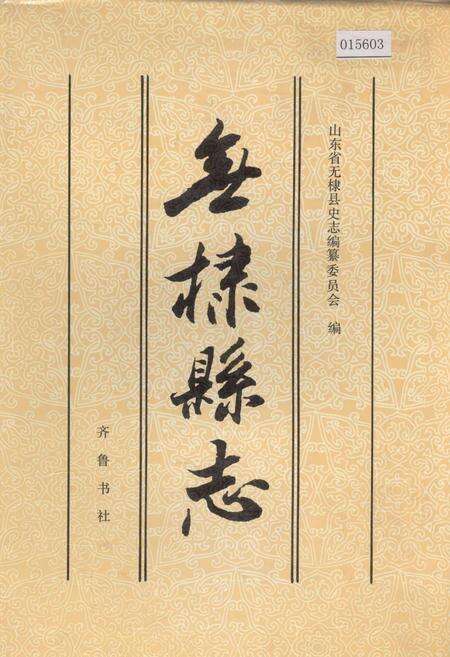 015603
山东省无棣县史志编纂委员会 编
無棣縣志
齐鲁书社